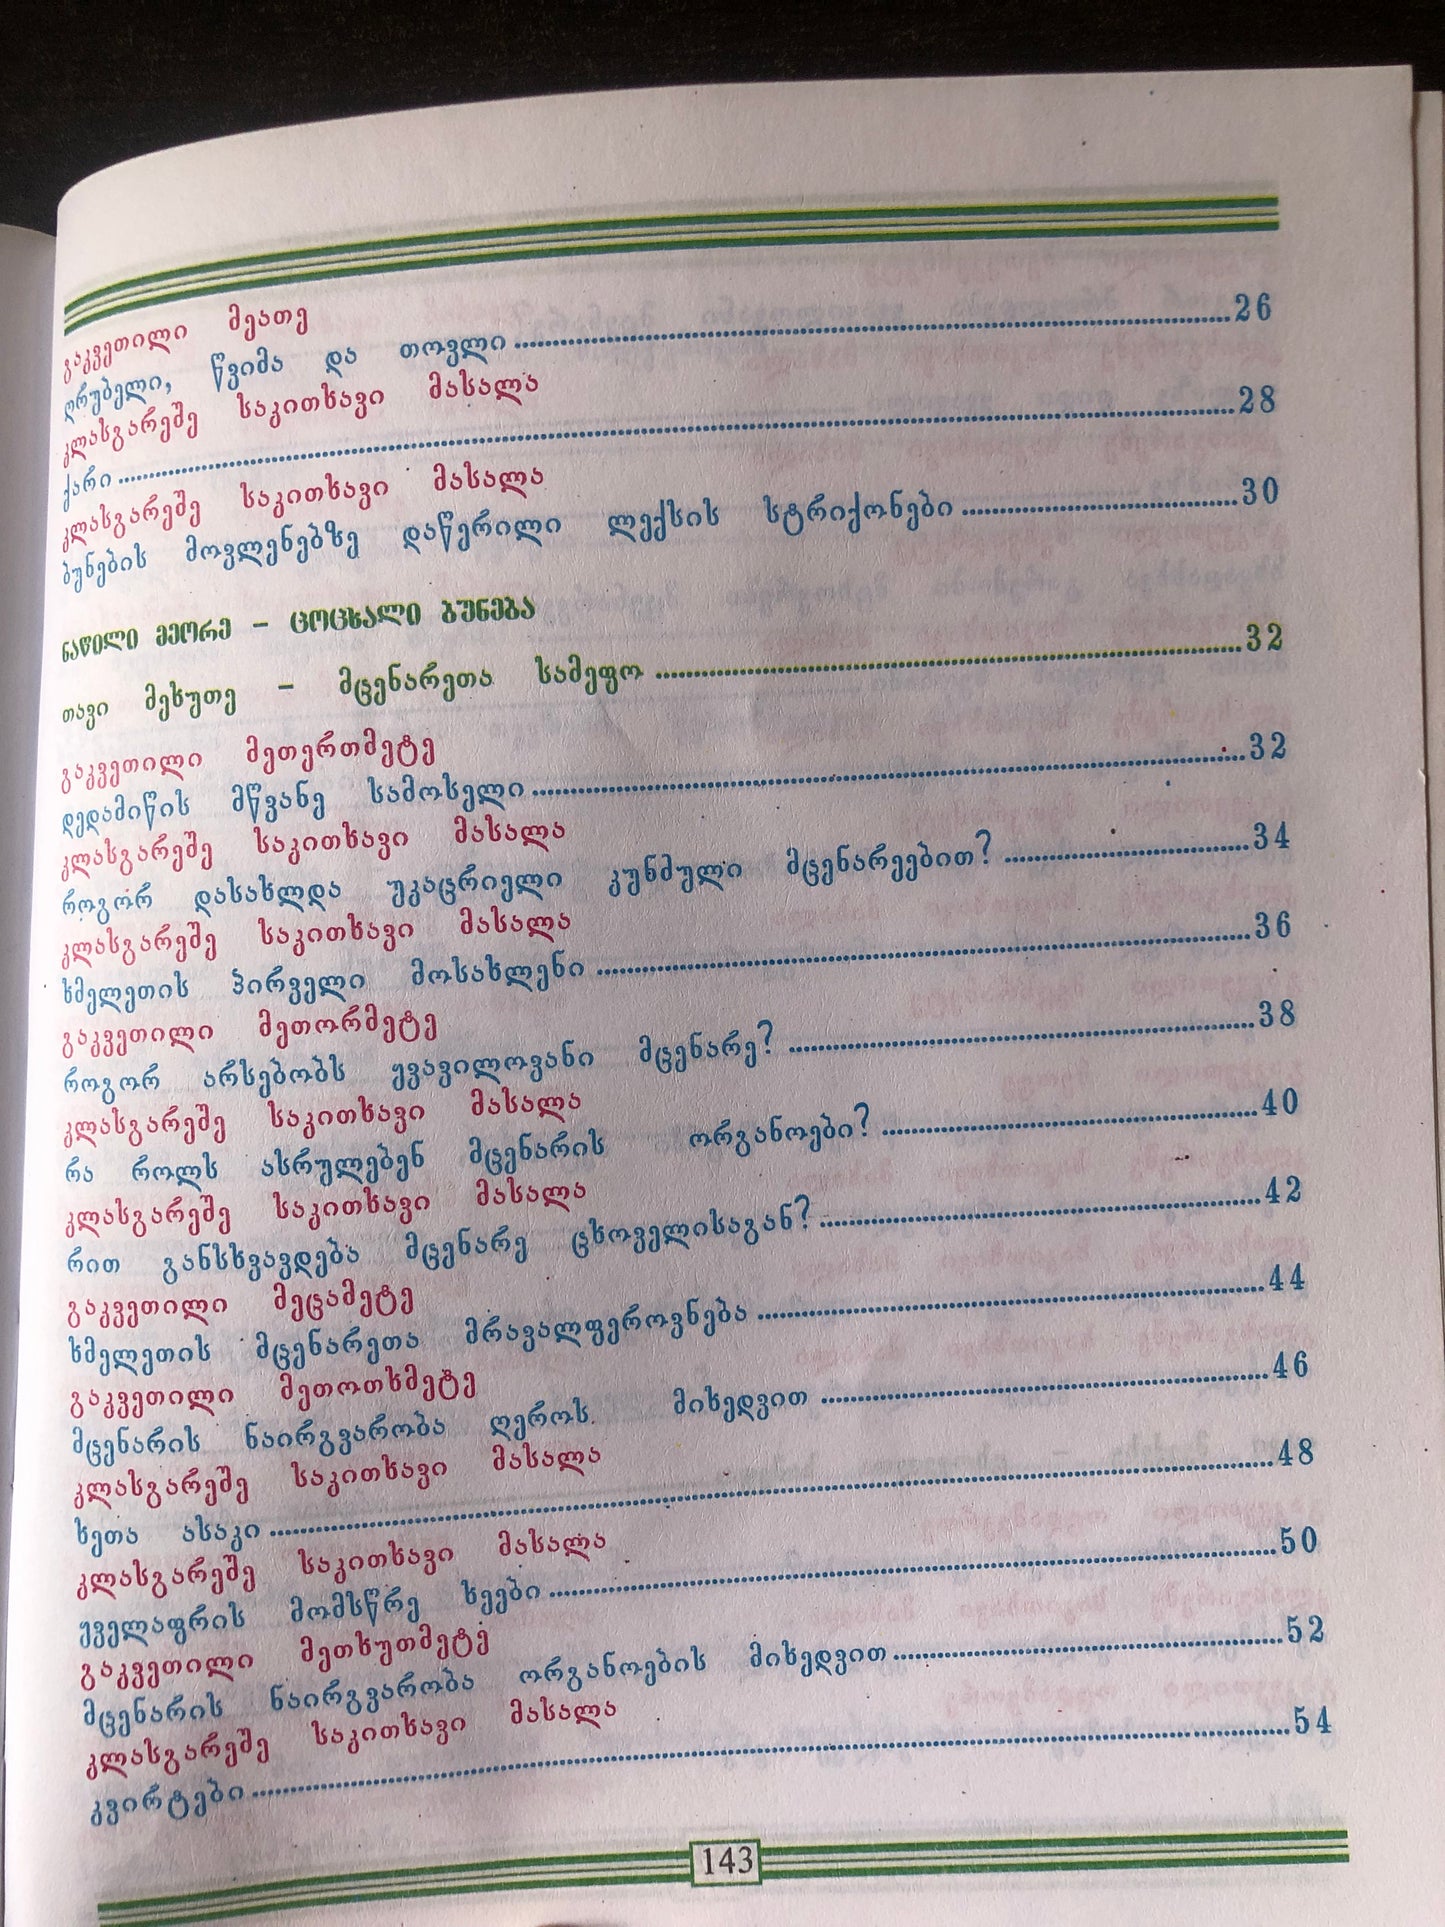 გაკვეთილი მეათე
ღრუბელი, წვიმა და თოვლი ........ 26
კლასგარეშე საკითხავი მასალა
ქარი ........ 28
კლასგარეშე საკითხავი მასალა
ბუნების მოვლენებზე დაწერილი ლექსის სტრიქონები ........ 30
ნაწილი მეორე – ცოცხალი ბუნება
თავი მეხუთე – მცენარეთა სამეფო ........ 32
გაკვეთილი მეთერთმეტე
დედამიწის მწვანე სამოსელი ........ 32
კლასგარეშე საკითხავი მასალა
როგორ დასახლდა უკაცრიელი კუნძული მცენარეებით? ........ 34
კლასგარეშე საკითხავი მასალა
ხმელეთის პირველი მოსახლენი ........ 36
გაკვეთილი მეთორმეტე
როგორ არსებობს ყვავილოვანი მცენარე? ........ 38
კლასგარეშე საკითხავი მასალა
რა როლს ასრულებენ მცენარის ორგანოები? ........ 40
კლასგარეშე საკითხავი მასალა
რით განსხვავდება მცენარე ცხოველისაგან? ........ 42
გაკვეთილი მეცამეტე
ხმელეთის მცენარეთა მრავალფეროვნება ........ 44
გაკვეთილი მეთოთხმეტე
მცენარის ნაირგვარობა ღეროს მიხედვით ........ 46
კლასგარეშე საკითხავი მასალა
ხეთა ასაკი ........ 48
კლასგარეშე საკითხავი მასალა
ყველაფრის მომსწრე ხეები ........ 50
გაკვეთილი მეთხუთმეტე
მცენარის ნაირგვარობა ორგანოების მიხედვით ........ 52
კლასგარეშე საკითხავი მასალა
კვირტები ........ 54
143